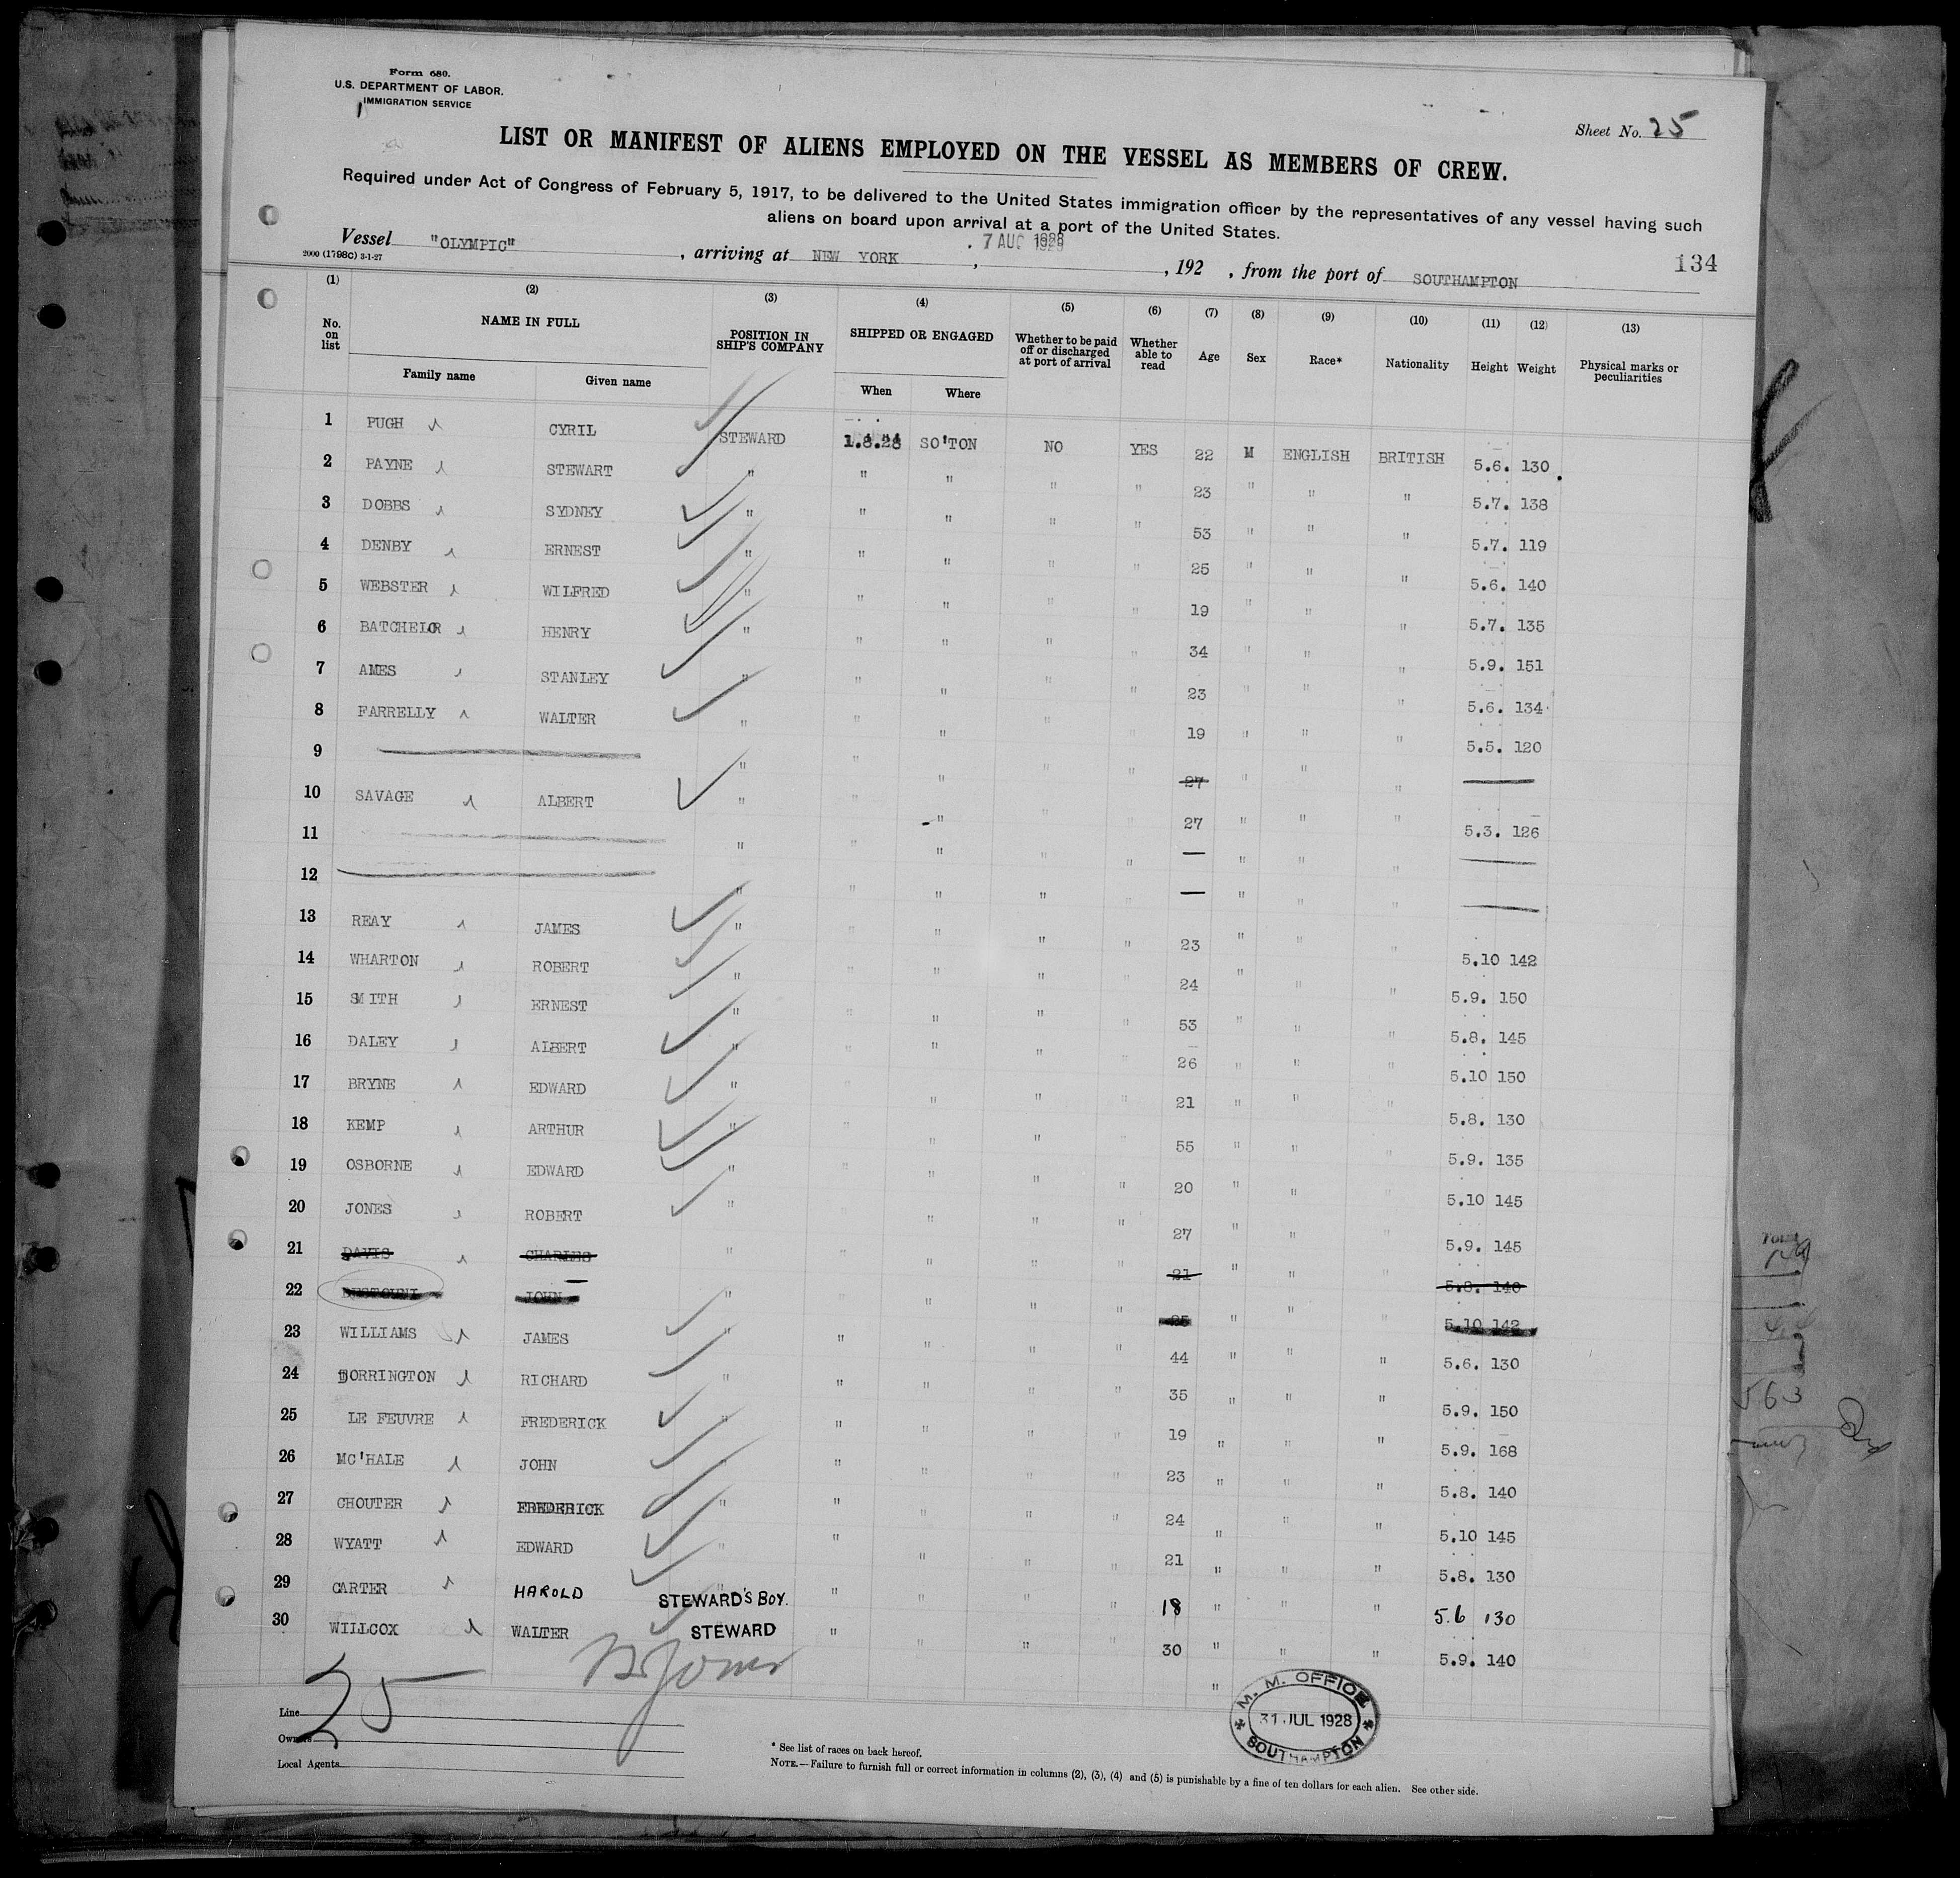 Form 680.
U.S. DEPARTMENT OF LABOR.
IMMIGRATION SERVICE
Sheet No. 25
LIST OR MANIFEST OF ALIENS EMPLOYED ON THE VESSEL AS MEMBERS OF CREW.
Required under Act of Congress of February 5, 1917, to be delivered to the United States immigration officer by the representatives of any vessel having such
aliens on board upon arrival at a port of the United States.
Vessel "OLYMPIC", arriving at NEW YORK, 7 AUG 1928, 192 , from the port of SOUTHAMPTON
134
2000 (1798c) 3-1-27
(1) (2) (3) (4) (5) (6) (7) (8) (9) (10) (11) (12) (13)
No. on list NAME IN FULL POSITION IN SHIP'S COMPANY SHIPPED OR ENGAGED Whether to be paid off or discharged at port of arrival Whether able to read Age Sex Race* Nationality Height Weight Physical marks or peculiarities
Family name Given name When Where
1 PUGH CYRIL STEWARD 1.8.28 SO'TON NO YES 22 M ENGLISH BRITISH 5.6. 130
2 PAYNE STEWART " " " " " 23 " " " 5.7. 138
3 DOBBS SYDNEY " " " " " 53 " " " 5.7. 119
4 DENBY ERNEST " " " " " 25 " " " 5.6. 140
5 WEBSTER WILFRED " " " " " 19 " " " 5.7. 135
6 BATCHELOR HENRY " " " " " 34 " " " 5.9. 151
7 AMES STANLEY " " " " " 23 " " " 5.6. 134
8 FARRELLY WALTER " " " " " 19 " " " 5.5. 120
9 " " " " " 27 " " "
10 SAVAGE ALBERT " " " " " 27 " " " 5.3. 126
11 " " " " " — " " "
12 " " " " " — " " "
13 REAY JAMES " " " " " 23 " " " 5.10 142
14 WHARTON ROBERT " " " " " 24 " " " 5.9. 150
15 SMITH ERNEST " " " " " 53 " " " 5.8. 145
16 DALEY ALBERT " " " " " 26 " " " 5.10 150
17 BRYNE EDWARD " " " " " 21 " " " 5.8. 130
18 KEMP ARTHUR " " " " " 55 " " " 5.9. 135
19 OSBORNE EDWARD " " " " " 20 " " " 5.10 145
20 JONES ROBERT " " " " " 27 " " " 5.9. 145
21 DAVIS CHARLES " " " " " 21 " " " 5.8. 140
22 JOHN " " " " " " " " 5.10 142
23 WILLIAMS JAMES " " " " " 44 " " " 5.6. 130
24 DORRINGTON RICHARD " " " " " 35 " " " 5.9. 150
25 LE FEUVRE FREDERICK " " " " " 19 " " " 5.9. 168
26 MC'HALE JOHN " " " " " 23 " " " 5.8. 140
27 CHOUTER FREDERICK " " " " " 24 " " " 5.10 145
28 WYATT EDWARD " " " " " 21 " " " 5.8. 130
29 CARTER HAROLD STEWARD'S BOY. " " " " 18 " " " 5.6 130
30 WILLCOX WALTER STEWARD " " " " 30 " " " 5.9. 140
25
Line
Owners
Local Agents
M. M. OFFICE
31 JUL 1928
SOUTHAMPTON
* See list of races on back hereof.
NOTE.—Failure to furnish full or correct information in columns (2), (3), (4) and (5) is punishable by a fine of ten dollars for each alien. See other side.
563